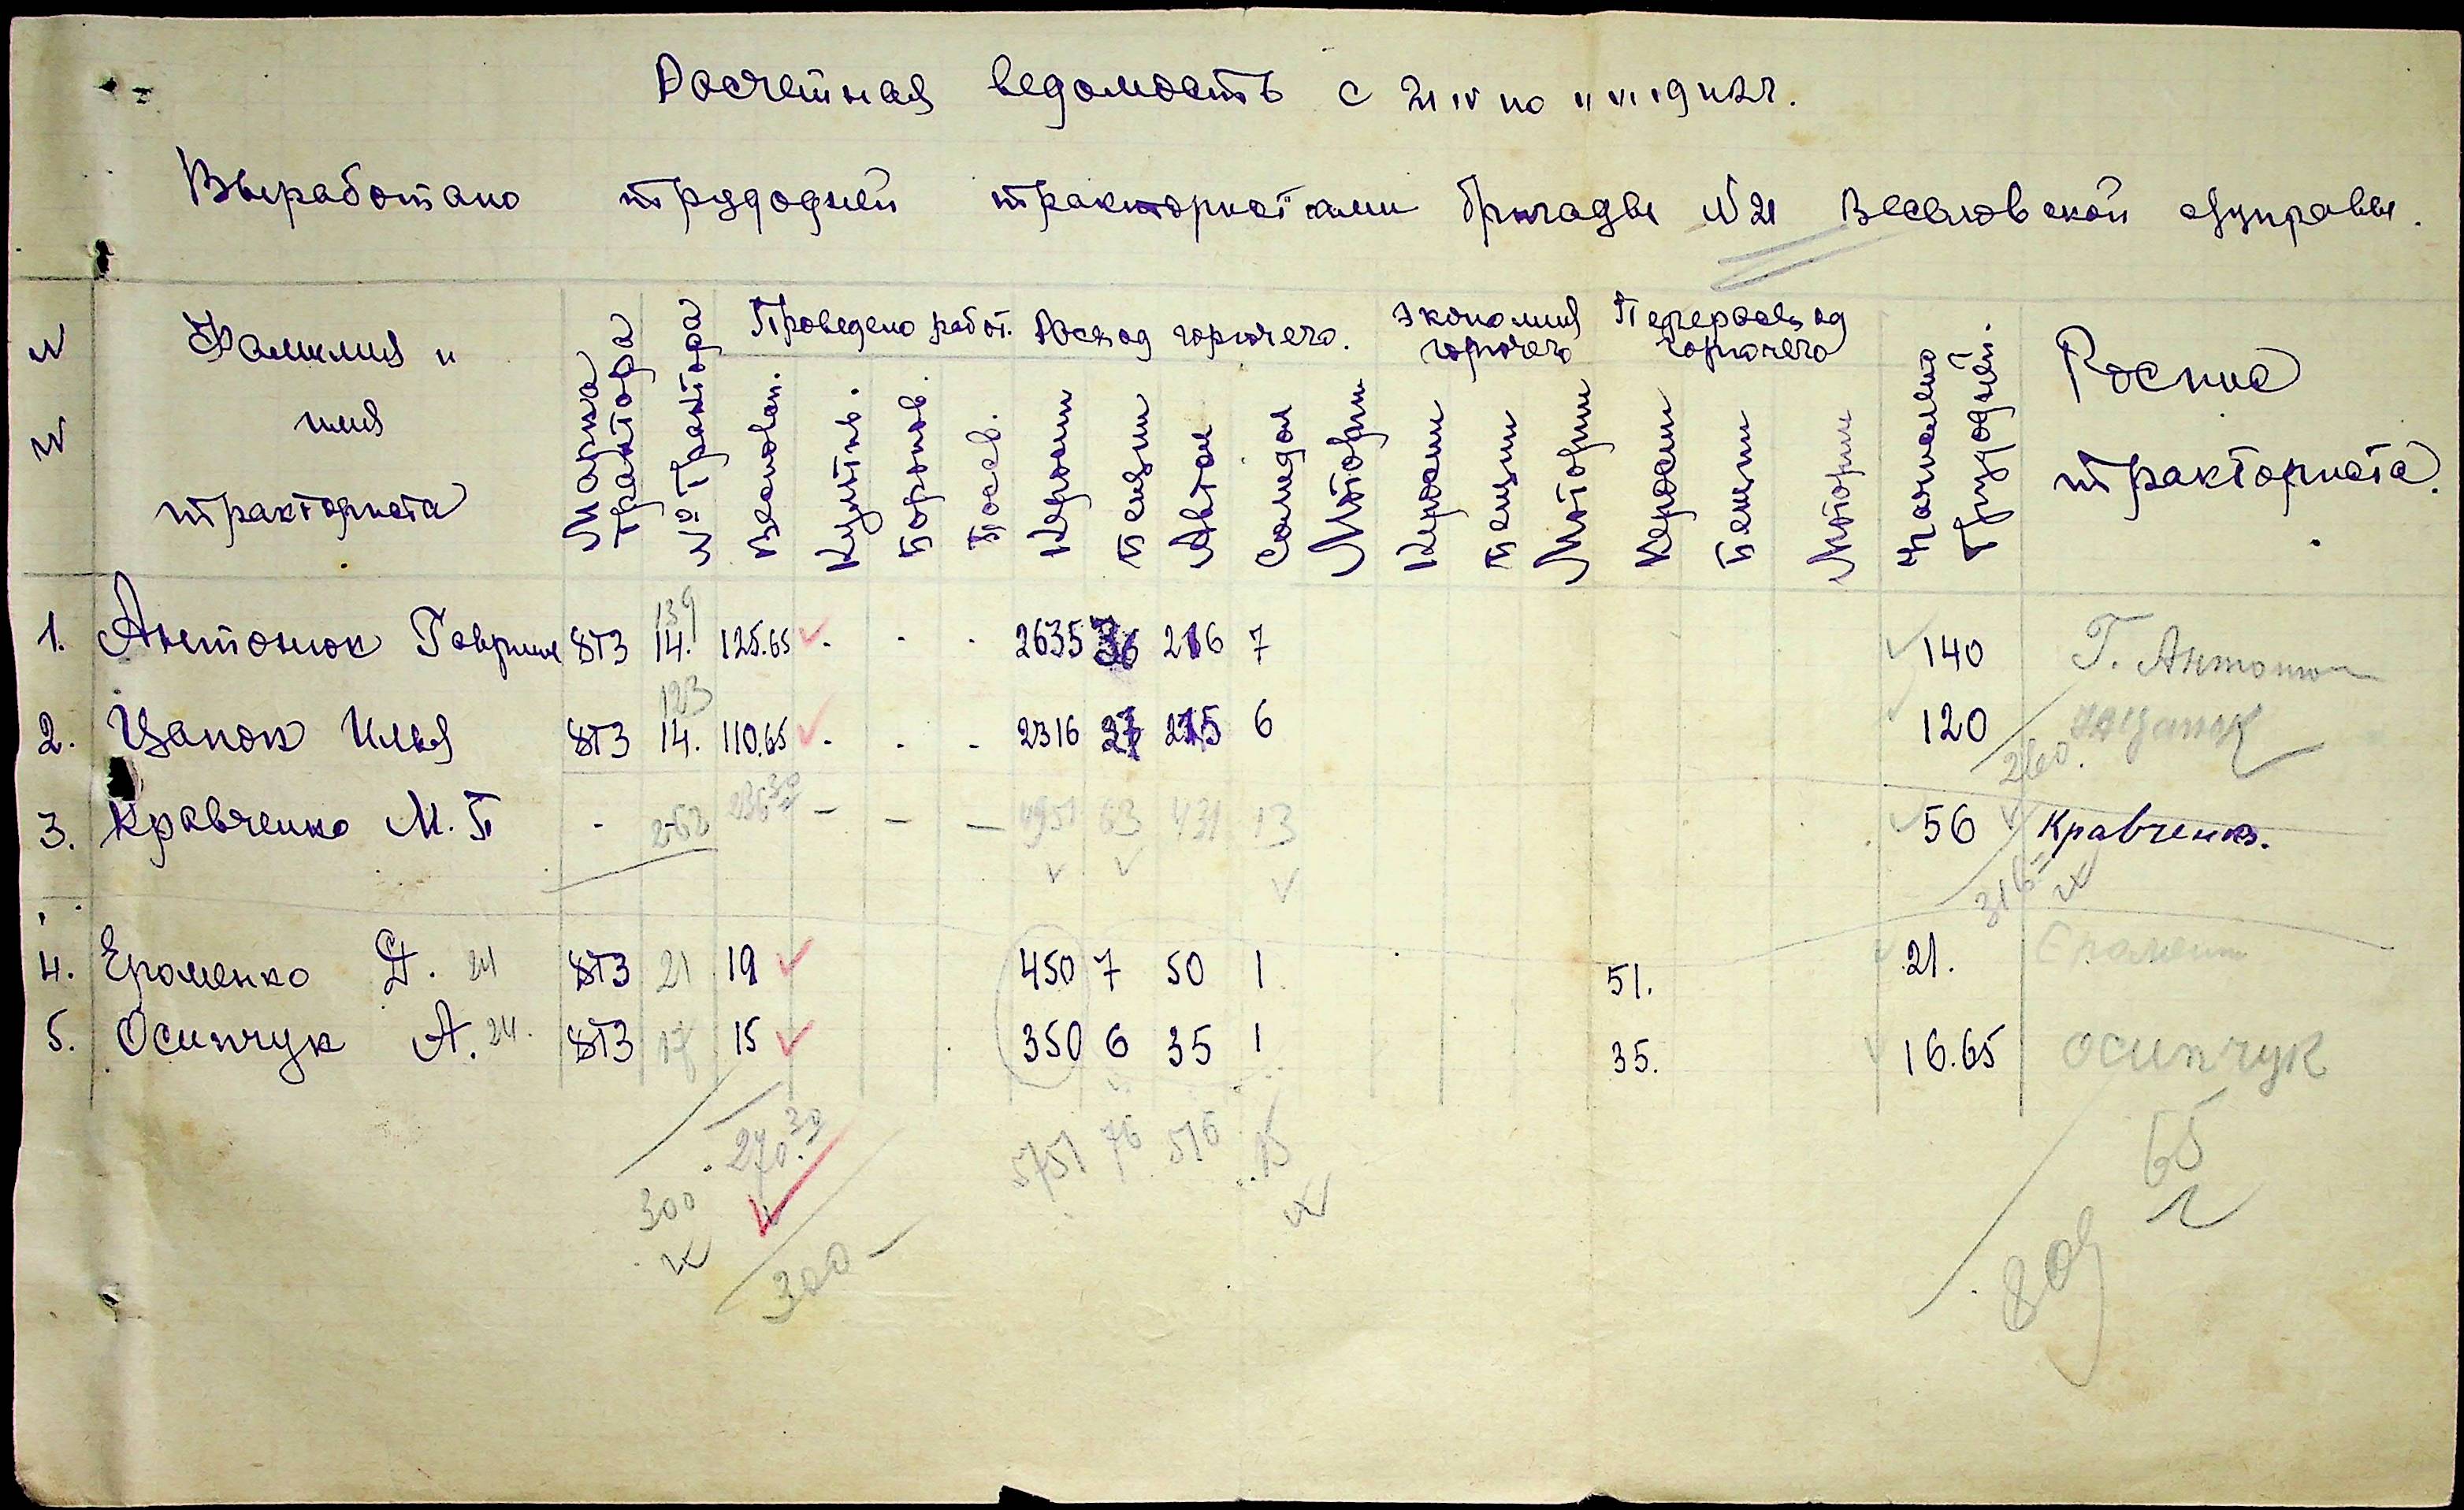 Расчетная ведомость с 21 IV по 11 VI 1942 г.
Выработано трудодней трактористами бригады N 21 Веселовской с/управы.
N N
Фамилия и имя тракториста
Марка трактора
№ Трактора
Проведено работ.
Весновсп.
Культив.
Боронов.
Посев.
Расход горючего.
Керосин
Бензин
Автол
Солидол
Моторин
Экономия горючего
Керосин
Бензин
Моторин
Перерасход горючего
Керосин
Бензин
Моторин
Начислено Трудодней.
Роспис тракториста.
1. Антонюк Гаврил 8ТЗ 139 14. 125.65 . . . 2635 36 216 7 140 Г. Антонюк
2. Цапок Илья 8ТЗ 123 14. 110.65 . . . 2316 27 215 6 120 Цапок
260.
3. Кравченко М. П - 262 236 30 – – – 4951 63 431 13 56 Кравченко.
316
4. Ероменко Д. 24 8ТЗ 21 19 450 7 50 1 51. 21. Еромен
5. Осипчук А. 24. 8ТЗ 17 15 350 6 35 1 35. 16.65 Осипчук
270.30 5751 76 516 15 65
300
300 –